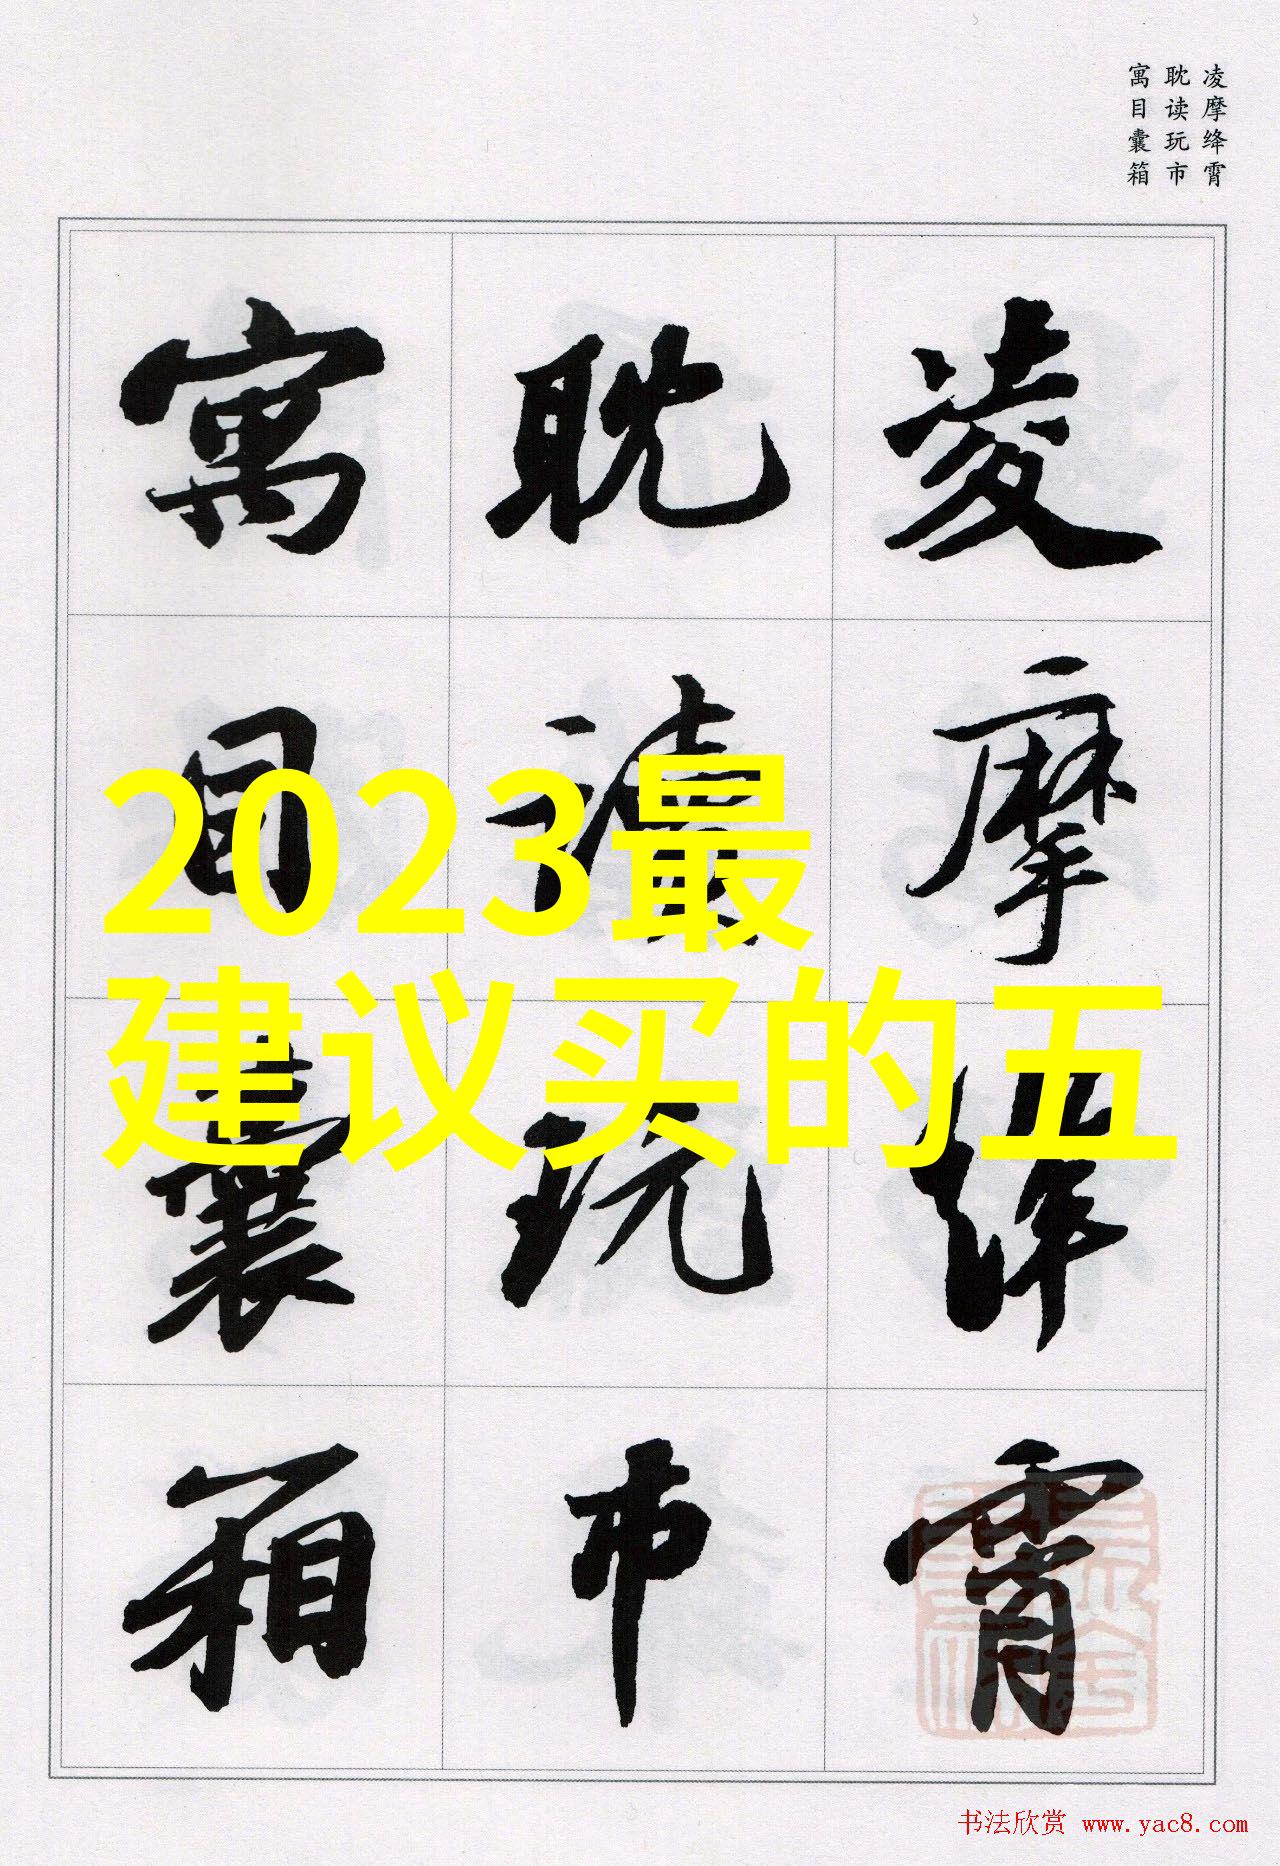 凌摩绛霄
耽读玩市
寓目囊箱
凌摩绛霄
耽读玩市
寓目囊箱
2023最
建议买的五
书法欣赏 www.yac8.com